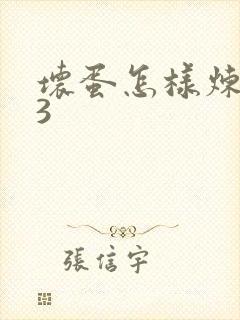 壞蛋怎樣煉
3
張信宇